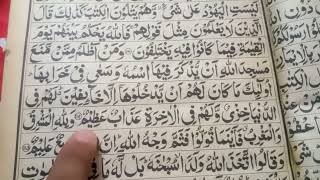 لَيْسَتِ الْيَهُوْدُ عَلٰى شَيْءٍ وَّهُمْ يَتْلُوْنَ الْكِتٰبَ كَذٰلِكَ قَالَ
الَّذِيْنَ لَا يَعْلَمُوْنَ مِثْلَ قَوْلِهِمْ فَاللّٰهُ يَحْكُمُ بَيْنَهُمْ يَوْمَ
الْقِيٰمَةِ فِيْمَا كَانُوْا فِيْهِ يَخْتَلِفُوْنَ وَمَنْ اَظْلَمُ مِمَّنْ مَّنَعَ
مَسٰجِدَ اللّٰهِ اَنْ يُّذْكَرَ فِيْهَا اسْمُهٗ وَسَعٰى فِيْ خَرَابِهَا
اُولٰٓئِكَ مَا كَانَ لَهُمْ اَنْ يَّدْخُلُوْهَآ اِلَّا خَآئِفِيْنَ لَهُمْ فِي
الدُّنْيَا خِزْيٌ وَّلَهُمْ فِي الْاٰخِرَةِ عَذَابٌ عَظِيْمٌ وَلِلّٰهِ الْمَشْرِقُ
وَالْمَغْرِبُ فَاَيْنَمَا تُوَلُّوْا فَثَمَّ وَجْهُ اللّٰهِ اِنَّ عَلِيْمٌ
وَقَالُوا اتَّخَذَ اللّٰهُ وَلَدًا سُبْحٰنَهٗ بَلْ لَّهٗ مَا